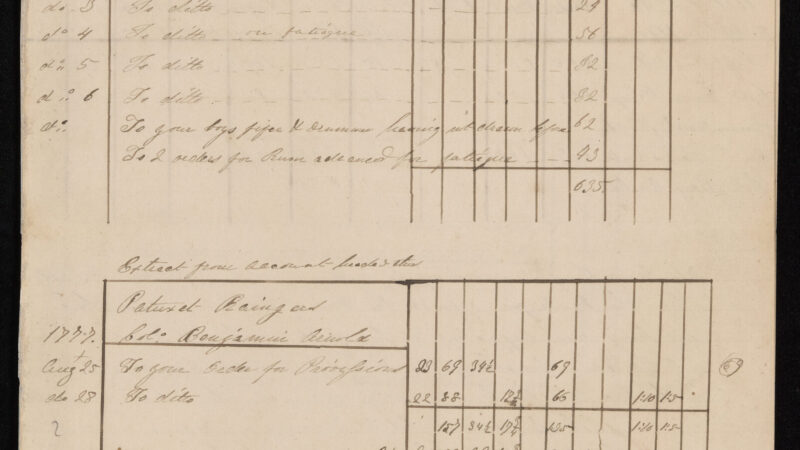 do. 3 To ditto 29
do 4 To ditto on fatigue 56
do. 5 To ditto 82
do. 6 To ditto 82
do. To your boys fifer & drummer having not drawn 62
To 2 orders for Rum advanced for fatigue 43
635.
Extract from account
Patuxet Raingers
1777. Colo. Benjamin Arnold
Augt 25 To your Order for Provisions 23 69 34½ 69
do 28 To ditto 22 88 66 1:10 1:5
157 34½ 135 1:10 1:5